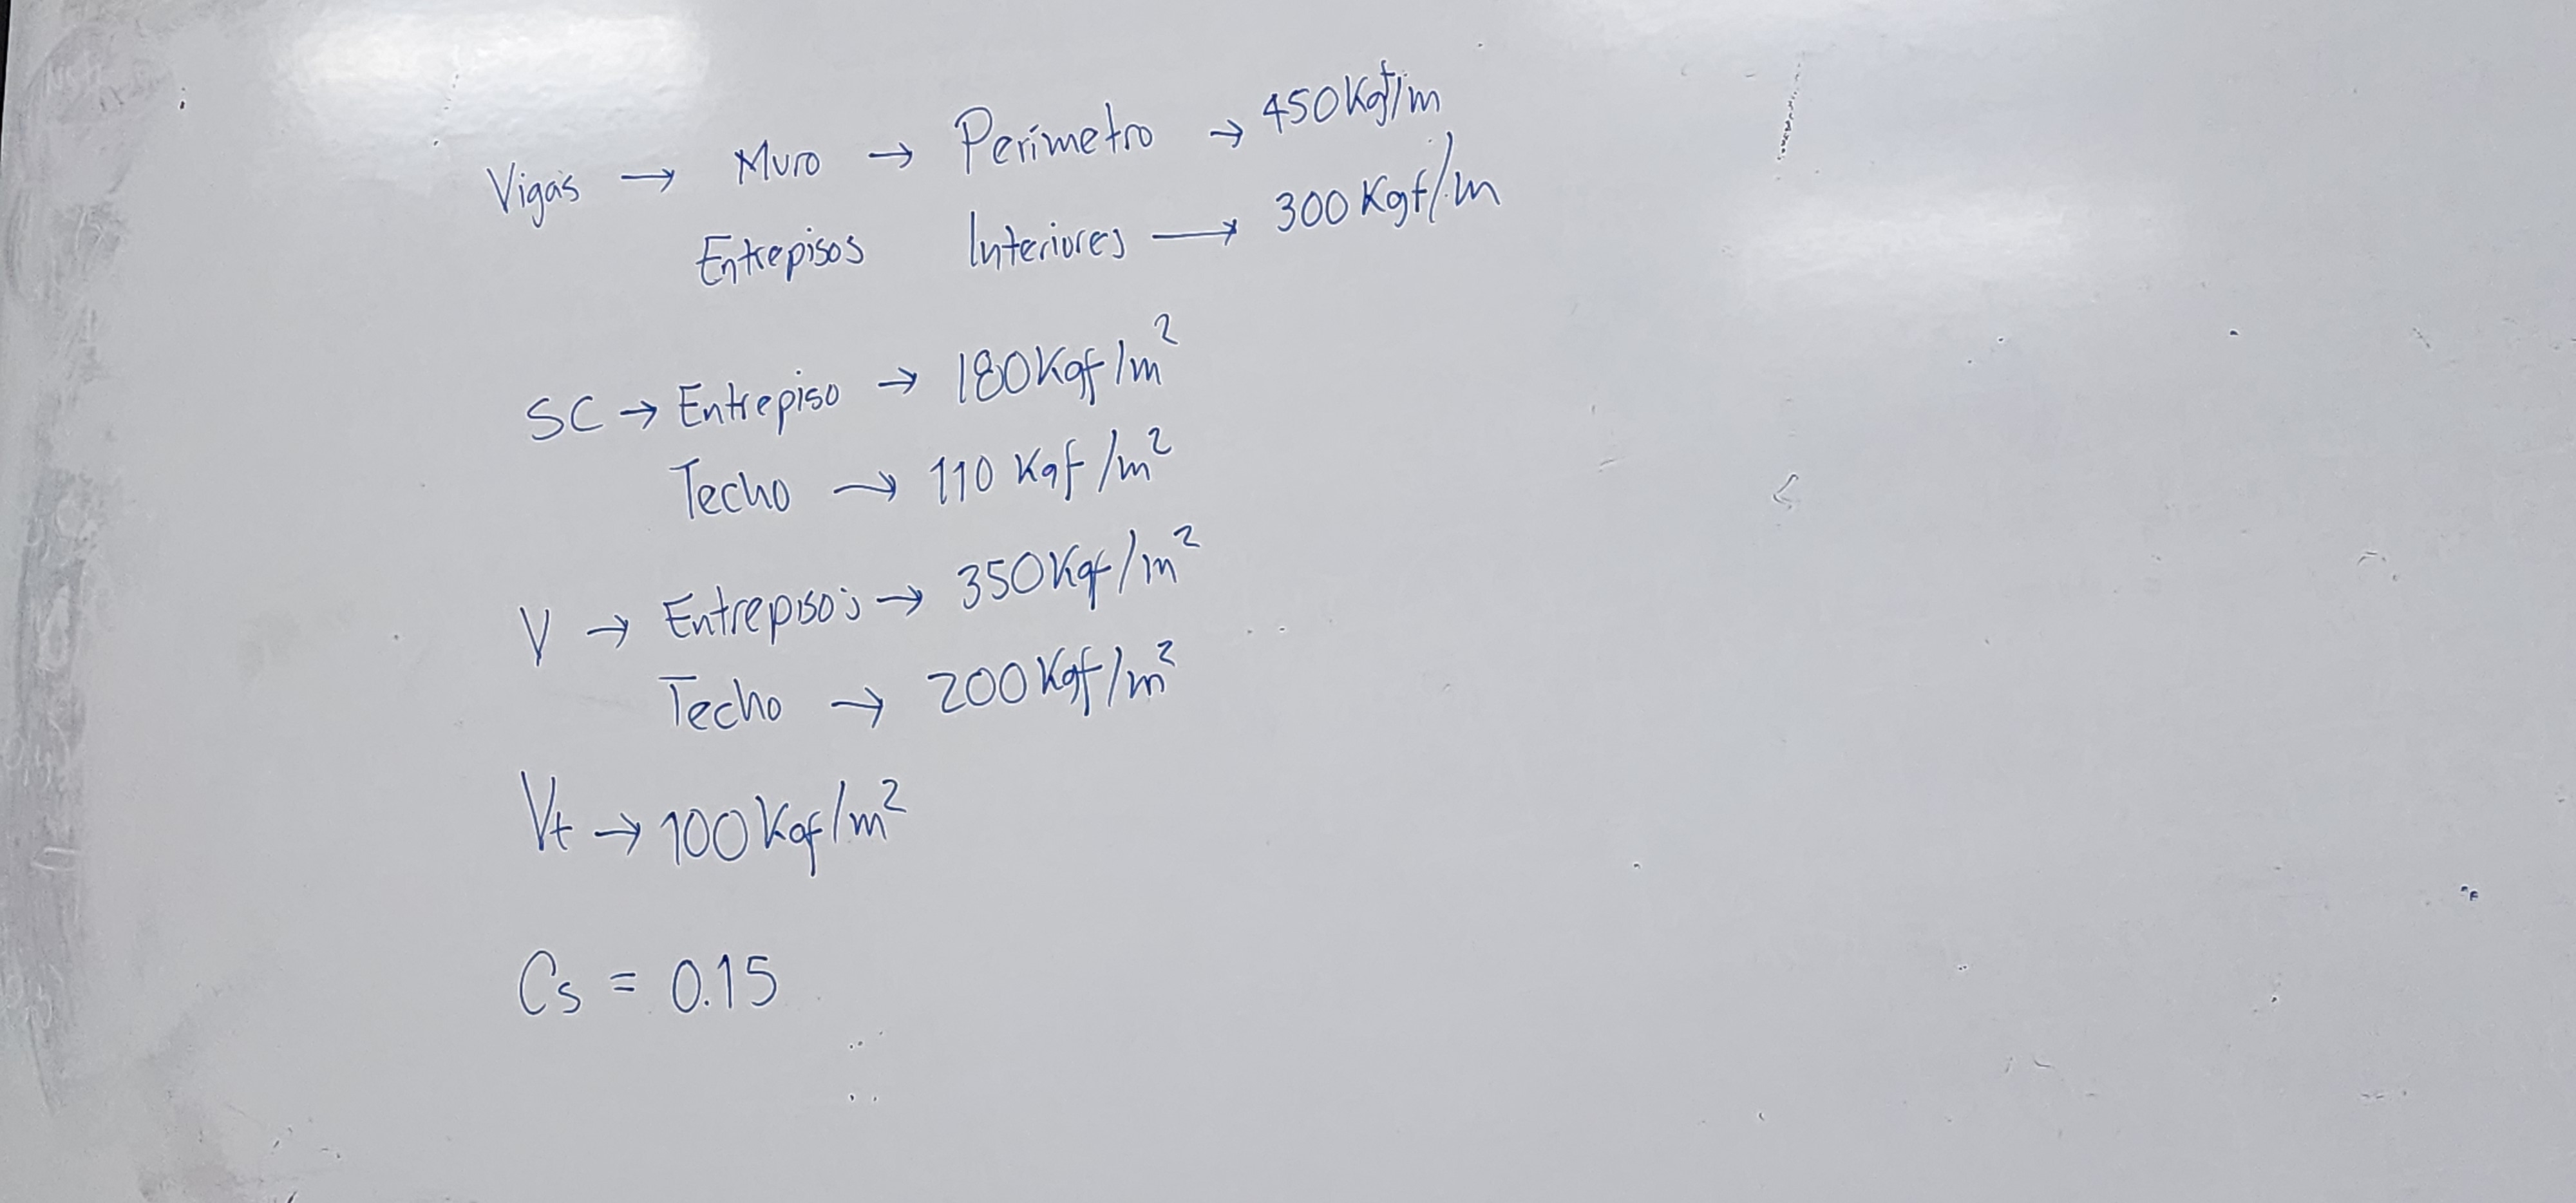 Vigas → Muro → Perímetro → 450Kgf/m
Entrepisos Interiores → 300 Kgf/m
SC → Entrepiso → 180Kgf/m²
Techo → 110 Kgf/m²
V → Entrepisos → 350Kgf/m²
Techo → 200Kgf/m²
Vt → 100Kgf/m²
Cs = 0.15